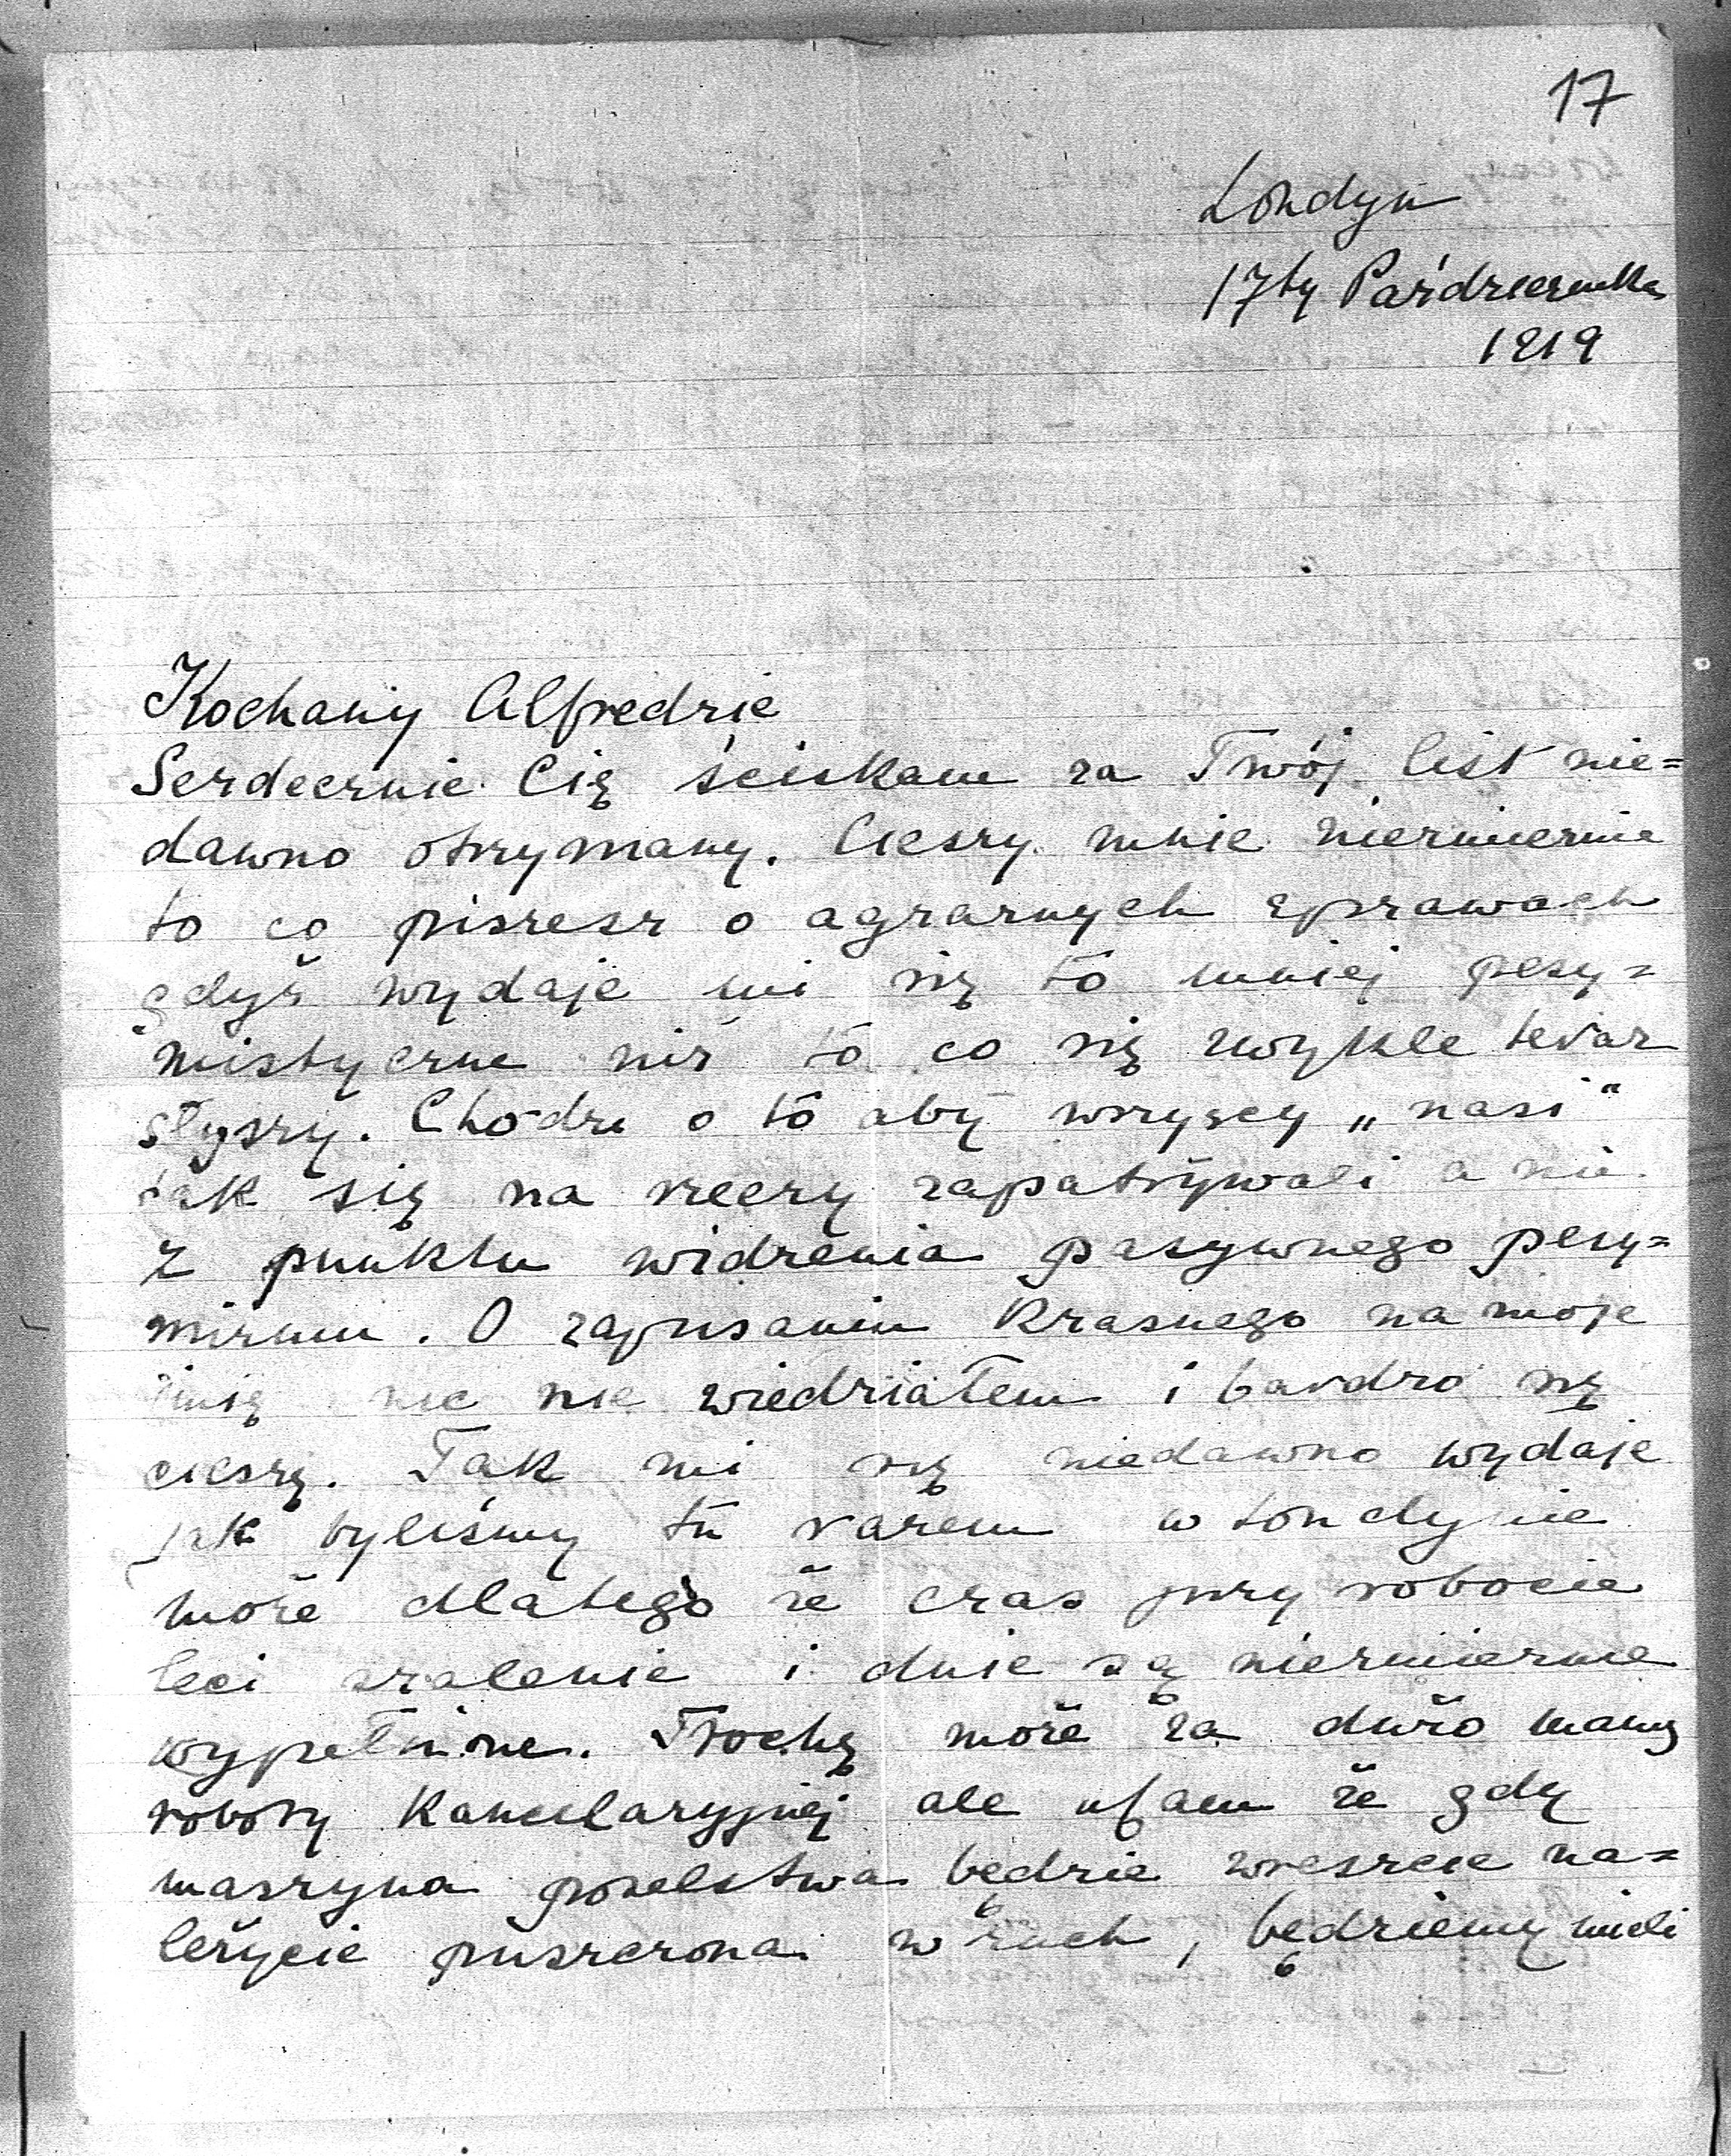 17
Londyn
17ty Października
1919
Kochany Alfredzie
Serdecznie Cię ściskam za Twój list nie=
dawno otrzymany. Cieszy mnie niezmiernie
to co piszesz o agrarnych sprawach
gdyż wydaje mi się to mniej pesy=
mistyczne niż to co się zwykle teraz
słyszy. Chodzi o to aby wszyscy „nasi"
tak się na rzeczy zapatrywali a nie
z punktu widzenia pasywnego pesy=
mizmu. O zapisaniu Krasnego na moje
imię nic nie wiedziałem i bardzo się
cieszę. Tak mi się niedawno wydaje
jak byliśmy tu razem w Londynie
może dlatego że czas przy robocie
leci szalenie i dnie są niezmiernie
wypełnione. Trochę może za dużo mamy
roboty kancelaryjnej ale ufam że gdy
maszyna poselstwa będzie wreszcie na=
leżycie puszczona w ruch, będziemy mieli